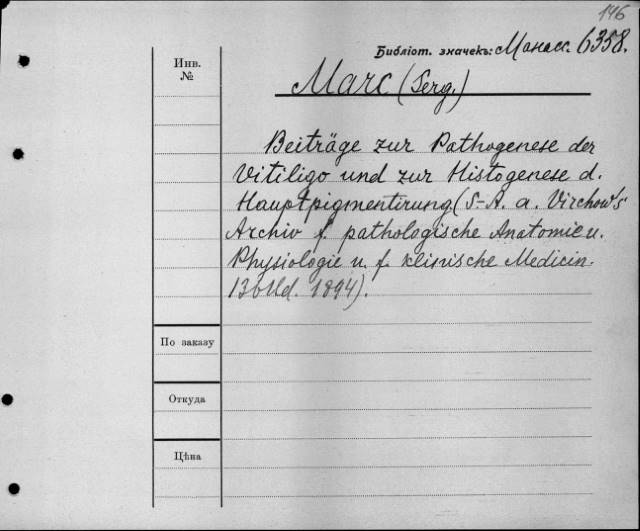 146
Библіот. значекъ: Манасс. 6358.
Инв.
№
Marc (Serg.)
Beiträge zur Pathogenese der
Vitiligo und zur Histogenese d.
Hauptpigmentirung (S-A. a. Virchow's
Archiv f. pathologische Anatomie u.
Physiologie u. f. klinische Medicin.
136 Bd. 1894).
По заказу
Откуда
Цѣна